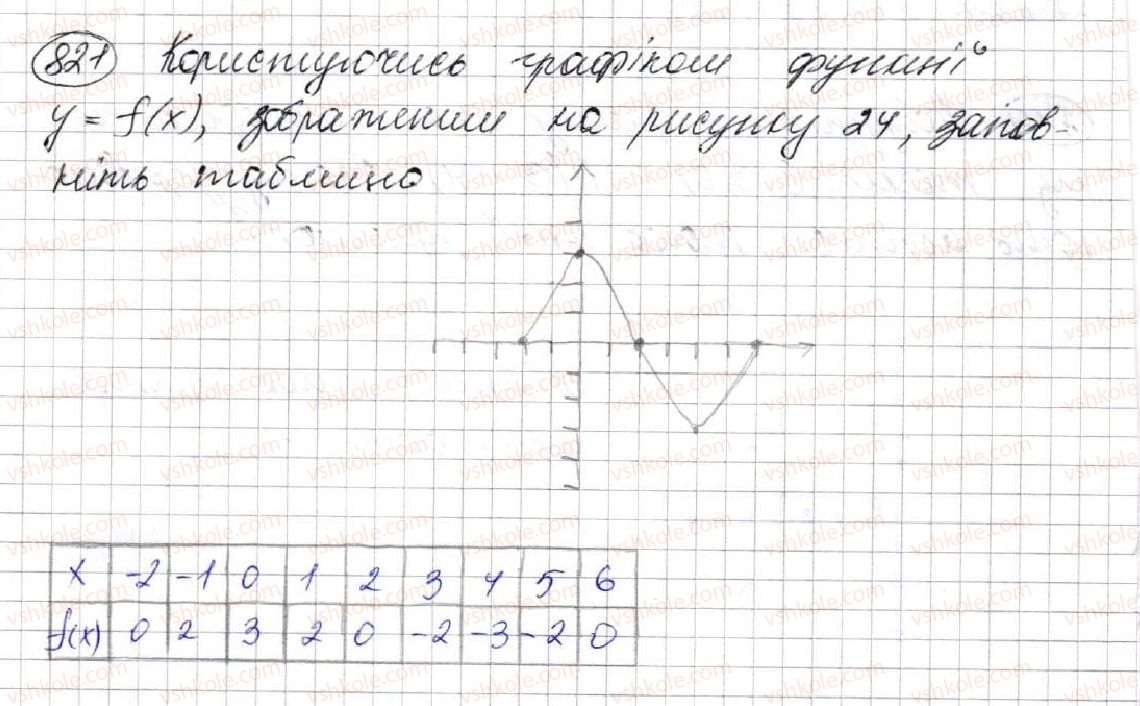 821 Користуючись графіком функції
y = f(x), зображеним на рисунку 24, запов-
ніть таблицю
x -2 -1 0 1 2 3 4 5 6
f(x) 0 2 3 2 0 -2 -3 -2 0
vshkole.com